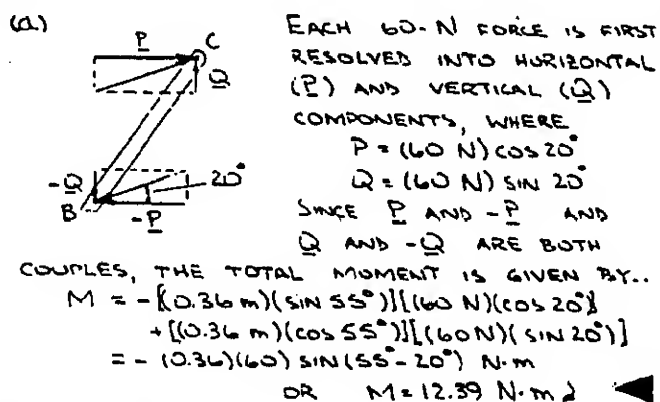 (a)
P C
Q
-Q 20°
B -P
EACH 60-N FORCE IS FIRST
RESOLVED INTO HORIZONTAL
(P) AND VERTICAL (Q)
COMPONENTS, WHERE
P = (60 N) COS 20°
Q = (60 N) SIN 20°
SINCE P AND -P AND
Q AND -Q ARE BOTH
COUPLES, THE TOTAL MOMENT IS GIVEN BY..
M = -[(0.36 m)(SIN 55°)][(60 N)(COS 20°)]
+[(0.36 m)(COS 55°)][(60N)(SIN 20°)]
= -(0.36)(60) SIN(55°-20°) N·m
OR M = 12.39 N·m ↻ ◀